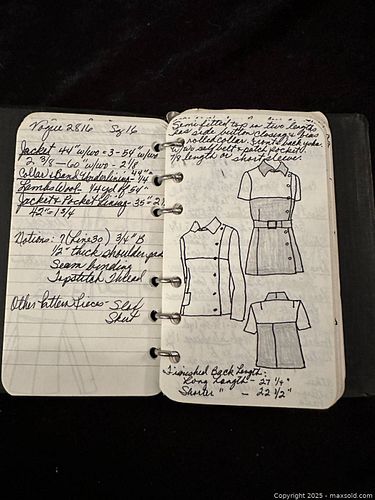 Vogue 2816 Sz 16
Jacket 44" w/wo - 3 - 54" w/wo
2 3/8 - 60" w/wo - 2 1/8
Collar & Band Underlining - 44" - 1/4
Lambs Wool - 1/4 yd of 54"
Jacket & Pocket Lining - 35" 2 1/
42" - 1 3/4
Notions: 7 (Line 30) 3/4" B
1/2" thick shoulder pad
Seam binding
Topstitch Thread
Other Pattern Pieces -
Skirt
Semi-fitted top in two lengths
has side button closing & bias
rolled collar. Front & back yoke
w/or self belt & patch pockets.
7/8 length or short sleeve.
Finished Back Length:
Long Length - 27 1/4"
Shorter " - 22 1/2"
Copyright © 2025 - maxsold.com